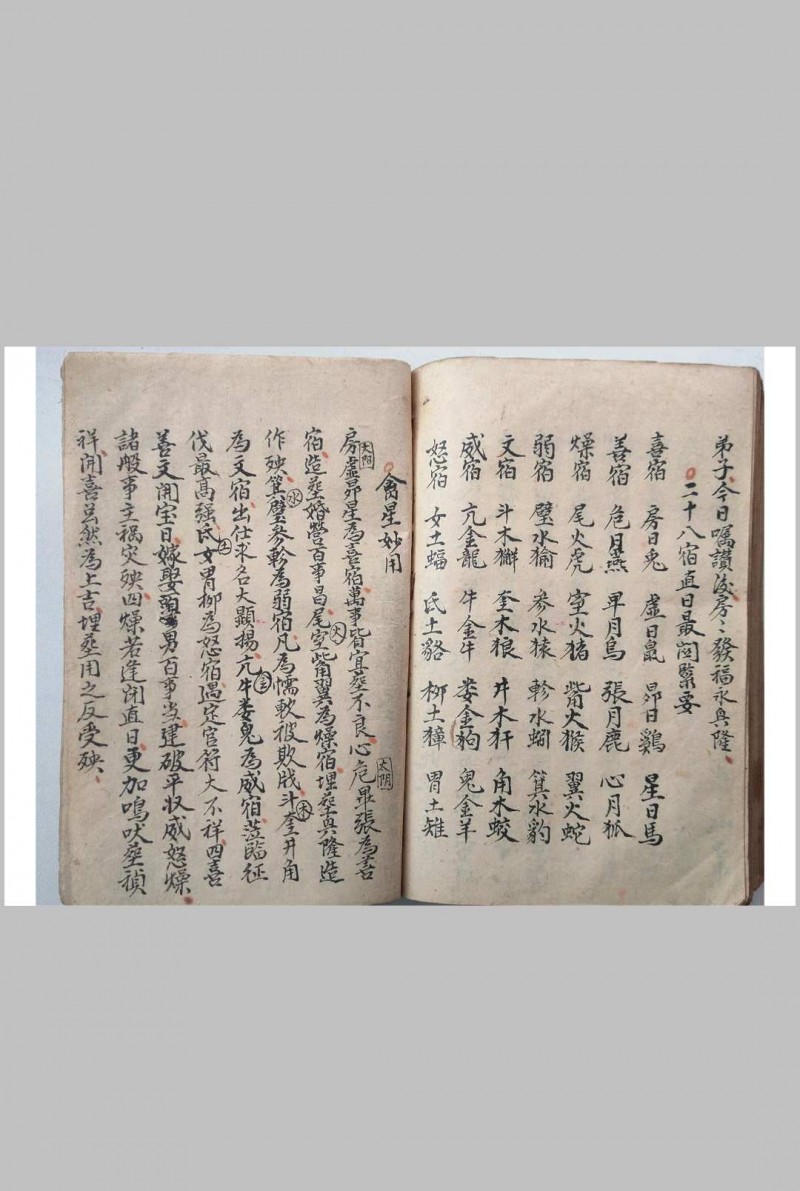 弟子今日嘱讃後房〻發福永興隆
二十八宿直日最関緊要
喜宿 房日兎 虚日鼠 昴日鷄 星日馬
善宿 危月燕 畢月烏 張月鹿 心月狐
燥宿 尾火虎 室火猪 觜火猴 翼火蛇
弱宿 璧水㺄 参水猿 軫水蚓 箕水豹
文宿 斗木獬 奎木狼 井木犴 角木蛟
威宿 亢金龍 牛金牛 娄金狗 鬼金羊
怒宿 女土蝠 氐土貉 柳土獐 胃土雉
禽星妙用
太阳 房虚昴星為喜宿萬事皆宜塟不良心危畢張為善 太阴
宿造塟婚營百事昌尾室觜翼為燥宿埋塟興隆造 火
作殃箕璧参軫為弱宿凡為懦軟被欺戕斗奎井角 水 木
為文宿出仕求名大顯揚亢牛娄鬼為威宿蒞臨征 金
伐最高强氐女胃柳為怒宿遇定官符大不祥四喜 土
善文開宝日嫁娶男百事当建破平收威怒燥
諸般事主禍灾殃四燥若逢闭直日更加鳴吠塟禎
祥開喜㒰然為上吉埋塟用之反受殃